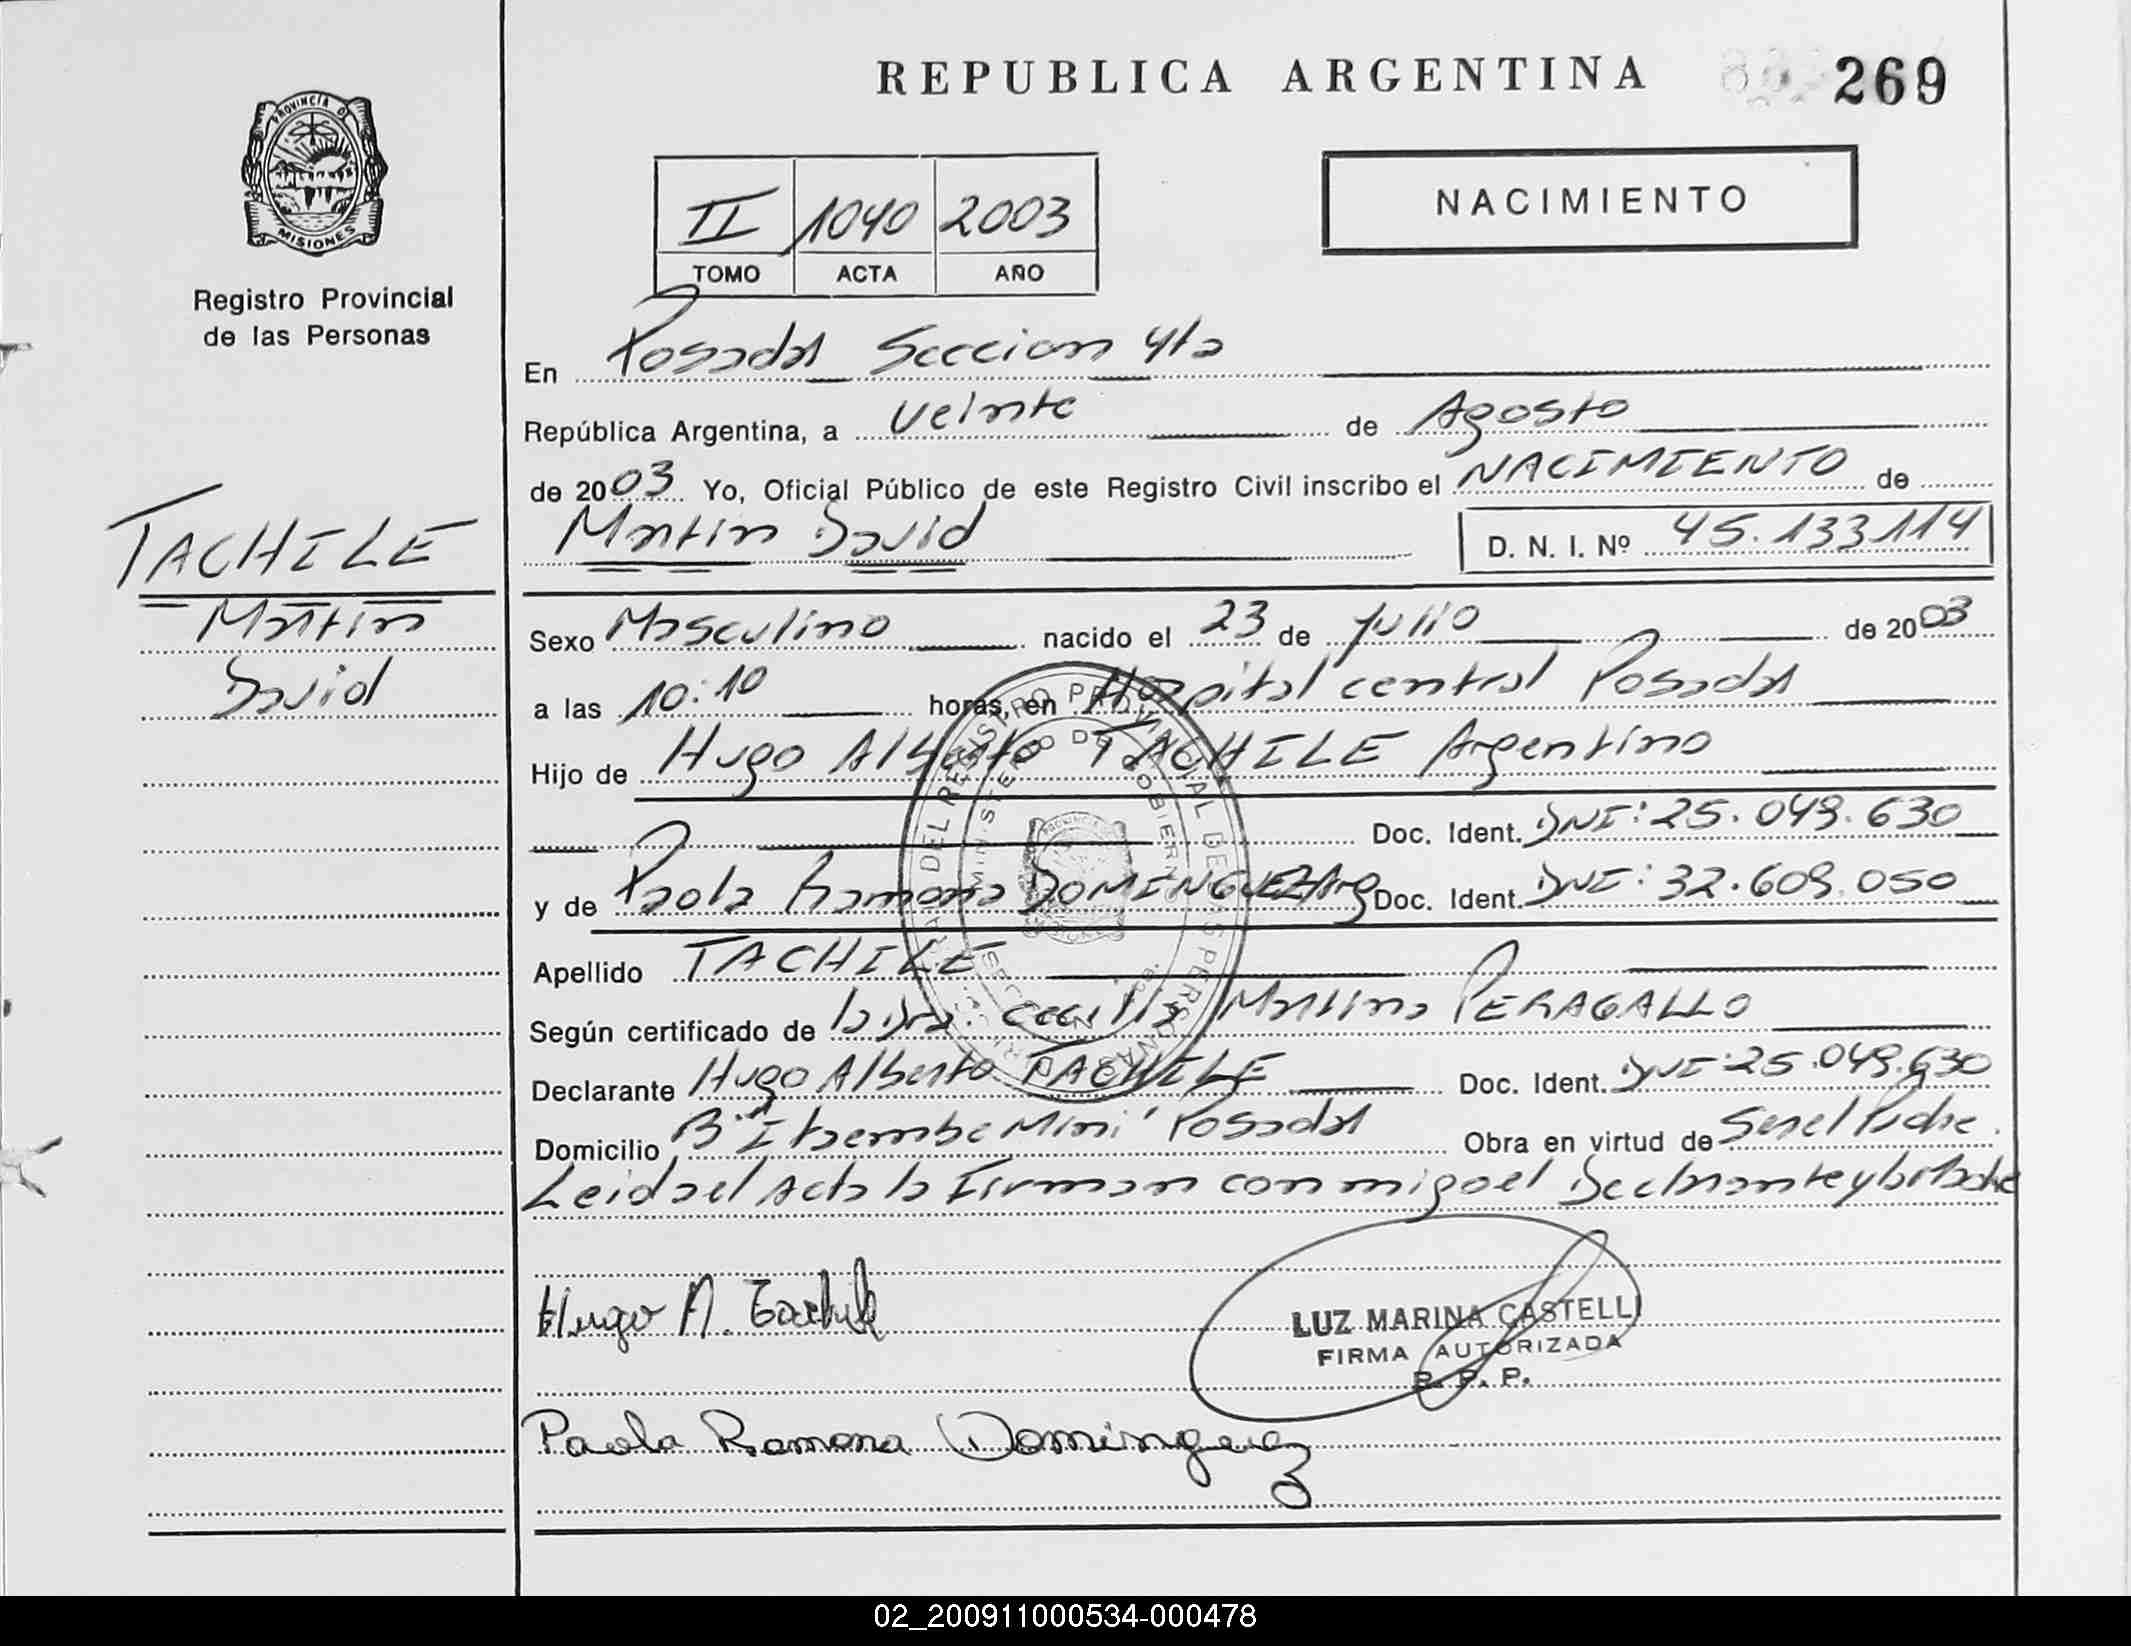 REPUBLICA ARGENTINA 269
PROVINCIA DE
MISIONES
Registro Provincial
de las Personas
NACIMIENTO
II 1040 2003
TOMO ACTA AÑO
En Posadas Seccion 4ta
República Argentina, a veinte de Agosto
de 2003 Yo, Oficial Público de este Registro Civil inscribo el NACIMIENTO de
Martin David D. N. I. Nº 45.133.114
TACHILE
Martin
David
Sexo Masculino nacido el 23 de Julio de 2003
a las 10:10 horas, en Hospital central Posadas
Hijo de Hugo Alberto TACHILE Argentino
Doc. Ident. DNI: 25.049.630
y de Paola Ramona DOMINGUEZ Arg Doc. Ident. DNI: 32.609.050
Apellido TACHILE
Según certificado de la Dra. Cecilia Martina PERAGALLO
Declarante Hugo Alberto TACHILE Doc. Ident. DNI 25.049.630
Domicilio B° Itaembe Mini Posadas Obra en virtud de Ser el Padre.
Leida el Acta la Firman conmigo el Declarante y la Madre
Hugo A. Tachile
LUZ MARINA CASTELLI
FIRMA AUTORIZADA
R. P. P.
Paola Ramona Dominguez
02_200911000534-000478